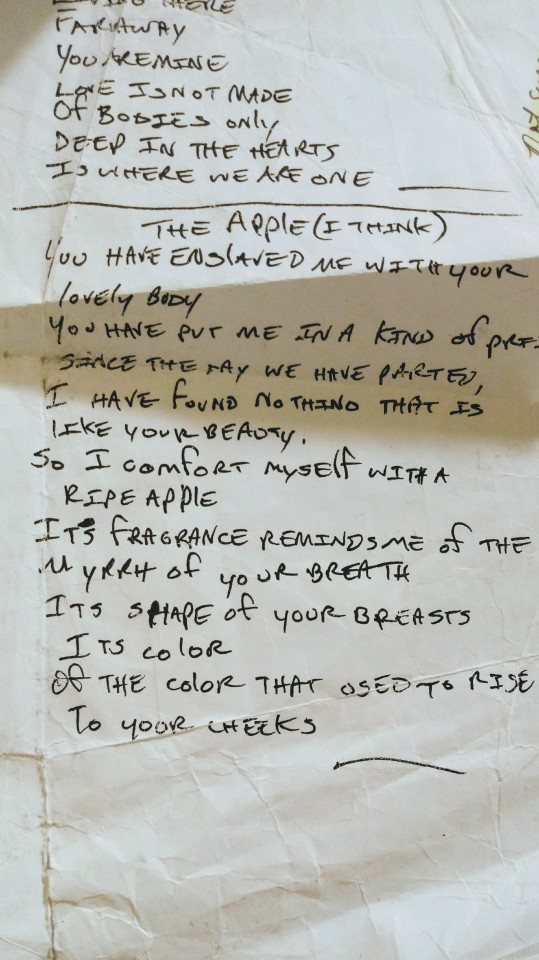 FARAWAY
YOU ARE MINE
LOVE IS NOT MADE
OF BODIES ONLY
DEEP IN THE HEARTS
IS WHERE WE ARE ONE
THE APPLE (I THINK)
YOU HAVE ENSLAVED ME WITH YOUR
LOVELY BODY
YOU HAVE PUT ME IN A KIND OF
SINCE THE DAY WE HAVE PARTED,
I HAVE FOUND NOTHING THAT IS
LIKE YOUR BEAUTY.
SO I COMFORT MYSELF WITH A
RIPE APPLE
ITS FRAGRANCE REMINDS ME OF THE
MYRRH OF YOUR BREATH
ITS SHAPE OF YOUR BREASTS
ITS COLOR
OF THE COLOR THAT USED TO RISE
TO YOUR CHEEKS